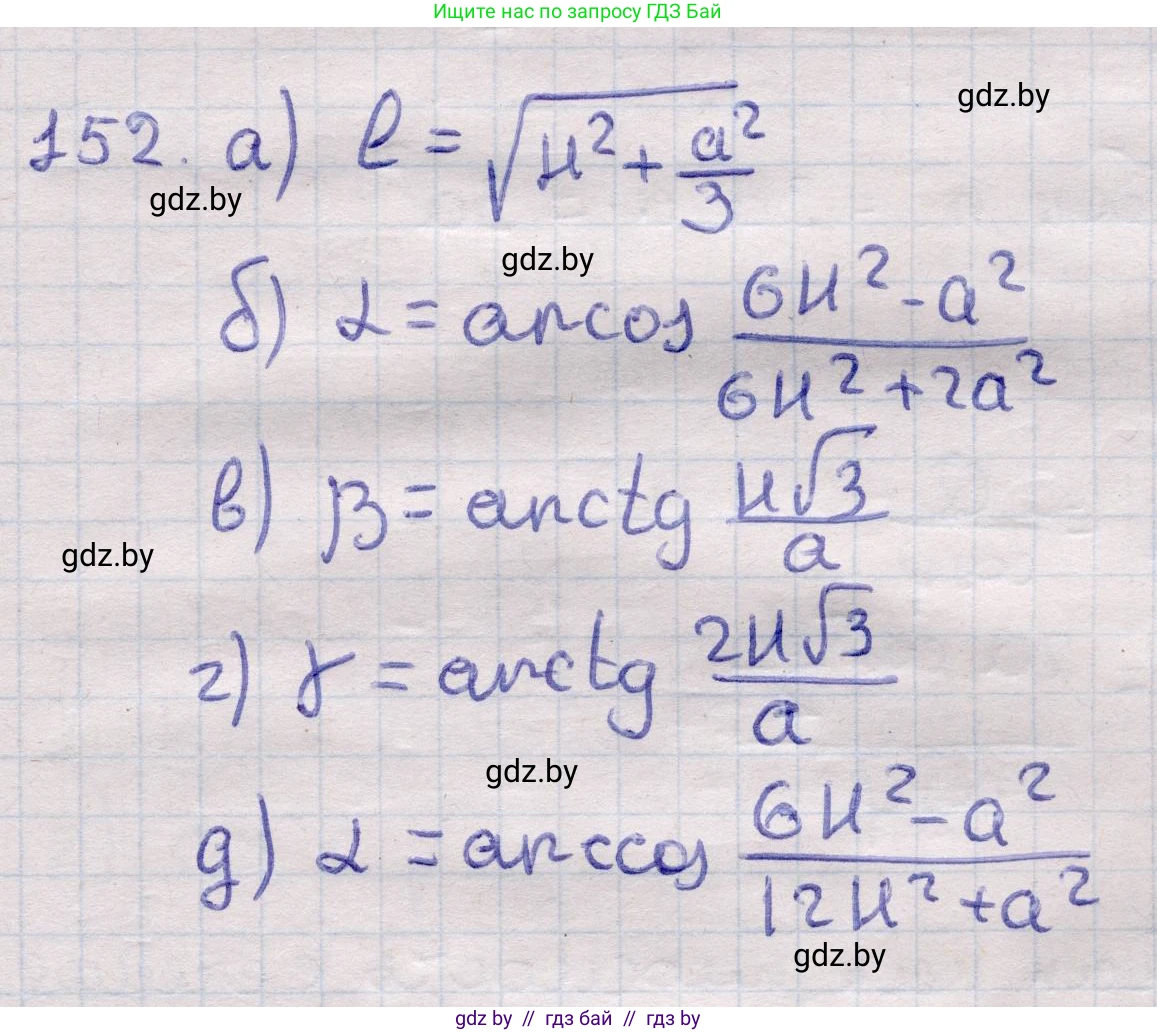 Ищите нас по запросу ГДЗ Бай
gdz.by
152. а) l = √(H² + a²/3)
gdz.by
gdz.by
б) α = arccos (6H² - a²)/(6H² + 2a²)
в) β = arctg H√3/a
gdz.by
г) γ = arctg 2H√3/a
gdz.by
д) α = arccos (6H² - a²)/(12H² + a²)
gdz.by
gdz.by // гдз бай // гдз by